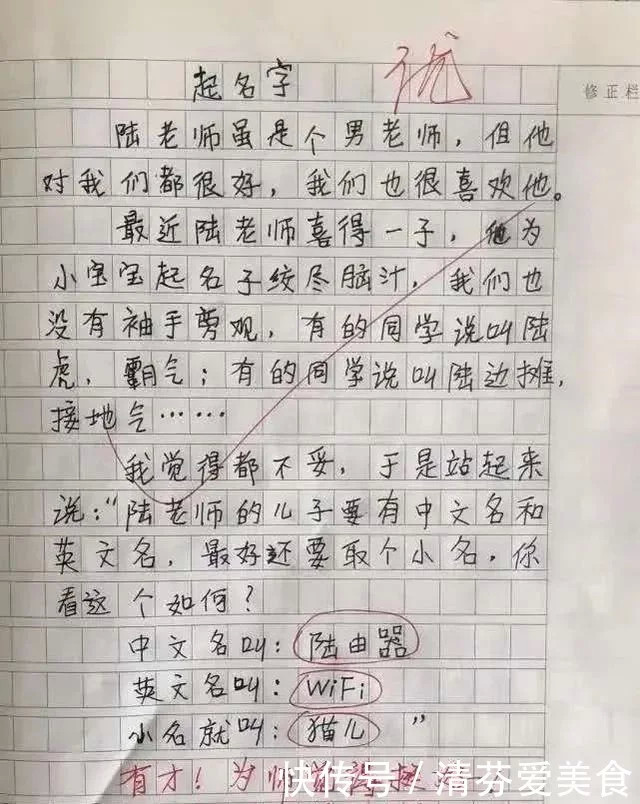 起名字
优
修正栏
陆老师虽是个男老师，但他
对我们都很好，我们也很喜欢他。
最近陆老师喜得一子，他为
小宝宝起名子绞尽脑汁，我们也
没有袖手剪观，有的同学说叫陆
虎，霸气；有的同学说叫陆边摊，
接地气……
我觉得都不妥，于是站起来
说：“陆老师的儿子要有中文名和
英文名，最好还要取个小名，你
看这个如何？
中文名叫：陆由器
英文名叫：WiFi
小名就叫：猫儿”
有才！为师
快传号/清芬爱美食